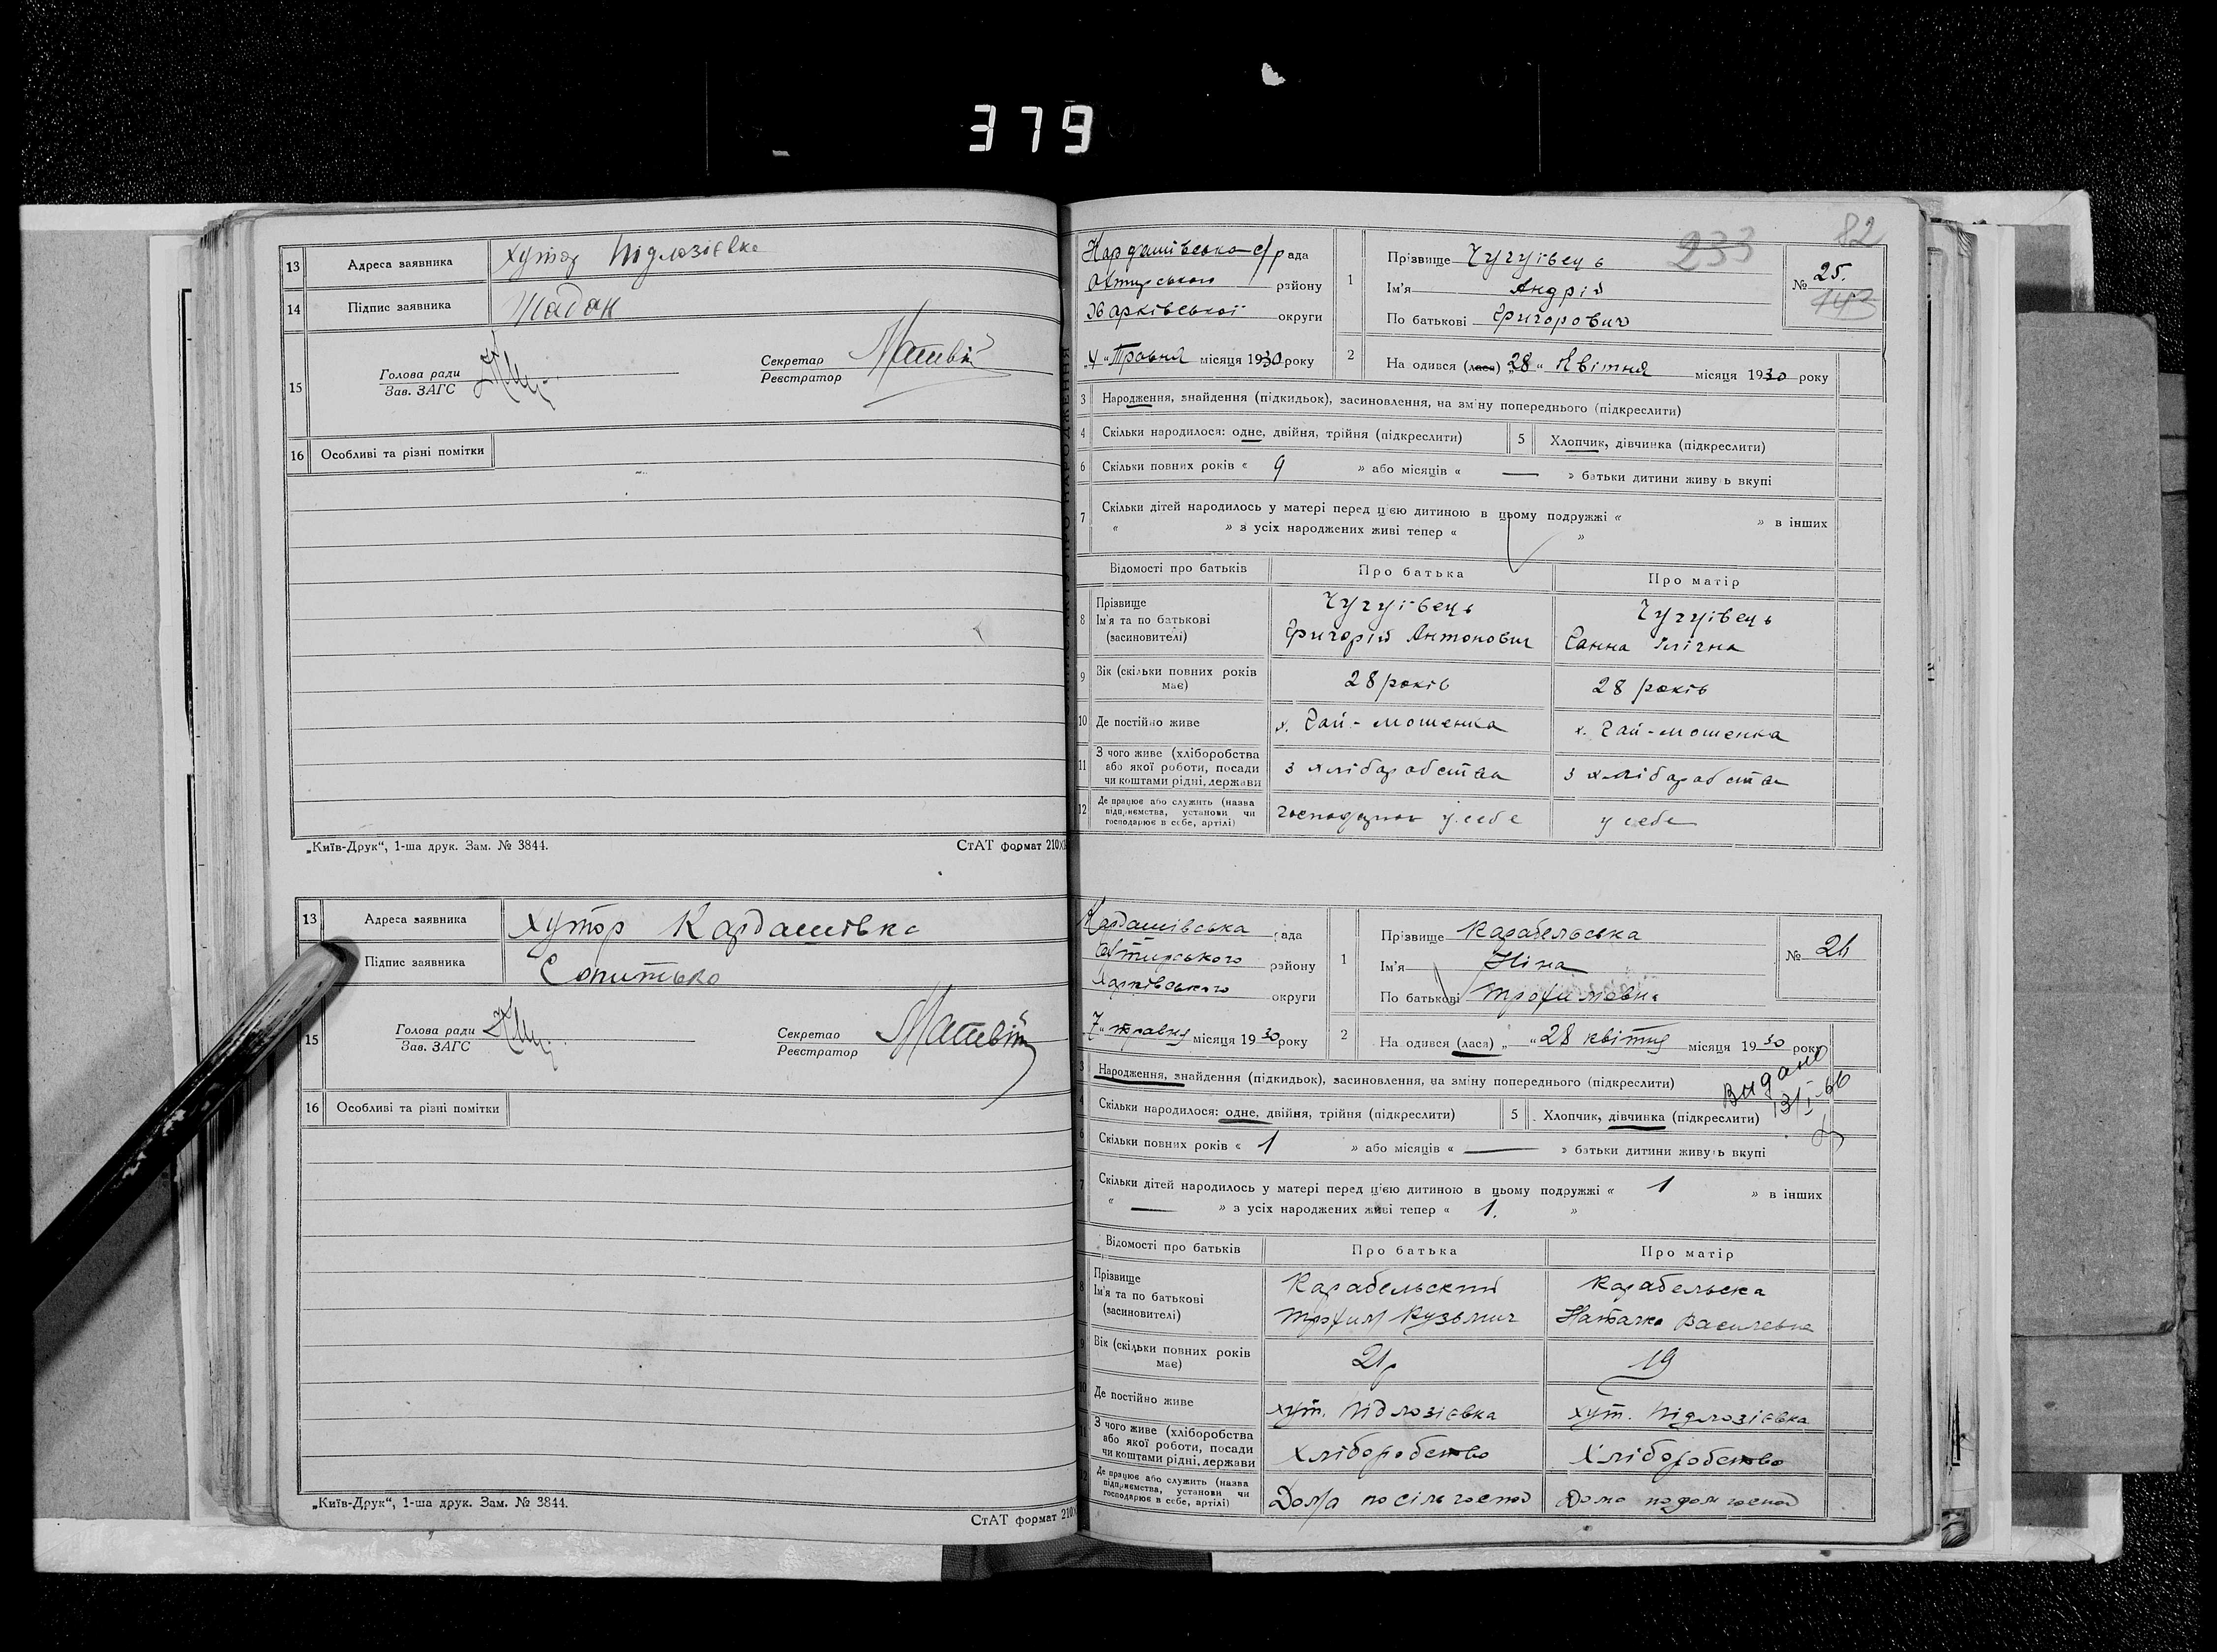 379
13 Адреса заявника хутор Підлозіевка
14 Підпис заявника
15 Голова ради
Зав. ЗАГС
Секретар Матвій
Реєстратор
16 Особливі та різні помітки
„Київ-Друк“, 1-ша друк. Зам. № 3844.
СтАТ формат 210х
13 Адреса заявника хутор Кардашівка
Підпис заявника Сопитько
15 Голова ради
Зав. ЗАГС
Секретар Матвій
Реєстратор
16 Особливі та різні помітки
„Київ-Друк“, 1-ша друк. Зам. № 3844.
СтАТ формат 210х
82
233
Кардашівська с/рада
Охтирського району
Харківської округи
„4“ Травня місяця 1930 року
1 Прізвище Чугуівець
Ім'я Андрій
По батькові Григорович
№ 25.
143
2 На одився (лася) „28“ Квітня місяця 1930 року
3 Народження, знайдення (підкидьок), засиновлення, на зміну попереднього (підкреслити)
4 Скільки народилося: одне, двійня, трійня (підкреслити) 5 Хлопчик, дівчинка (підкреслити)
6 Скільки повних років « 9 » або місяців « — » батьки дитини живуть вкупі
7 Скільки дітей народилось у матері перед цією дитиною в цьому подружжі « » в інших
« » з усіх народжених живі тепер « »
Відомості про батьків Про батька Про матір
8 Прізвище
Ім'я та по батькові
(засиновителі)
Чугуівець
Григорій Антонович
Чугуівець
Ганна Іллічна
9 Вік (скільки повних років має) 28 років 28 років
10 Де постійно живе х. Гай-мошенка х. Гай-мошенка
11 З чого живе (хліборобства
або якої роботи, посади
чи коштами рідні, держави
з хліборобства з хліборобства
12 Де працює або служить (назва
підприємства, установи чи
господарює в себе, артілі)
у себе у себе
Кардашівська рада
Охтирського району
Харківського округи
7“ травня місяця 1930 року
1 Прізвище Карабельська
Ім'я Ніна
По батькові Трохимовна
№ 26
2 На одився (лася) „ “28 квітня місяця 1930 року
Видано
13/I-66
3 Народження, знайдення (підкидьок), засиновлення, на зміну попереднього (підкреслити)
4 Скільки народилося: одне, двійня, трійня (підкреслити) 5 Хлопчик, дівчинка (підкреслити)
6 Скільки повних років « 1 » або місяців « — » батьки дитини живуть вкупі
7 Скільки дітей народилось у матері перед цією дитиною в цьому подружжі « 1 » в інших
« — » з усіх народжених живі тепер « 1. »
Відомості про батьків Про батька Про матір
8 Прізвище
Ім'я та по батькові
(засиновителі)
Карабельский
Трохим Кузьмич
Карабельска
Наталка Василевна
9 Вік (скільки повних років має) 21р 19
10 Де постійно живе хут. Підлозієвка хут. Підлозієвка
11 З чого живе (хліборобства
або якої роботи, посади
чи коштами рідні, держави
Хліборобство Хліборобство
12 Де працює або служить (назва
підприємства, установи чи
господарює в себе, артілі)
Дома по сільгоспод Дома по дом господ